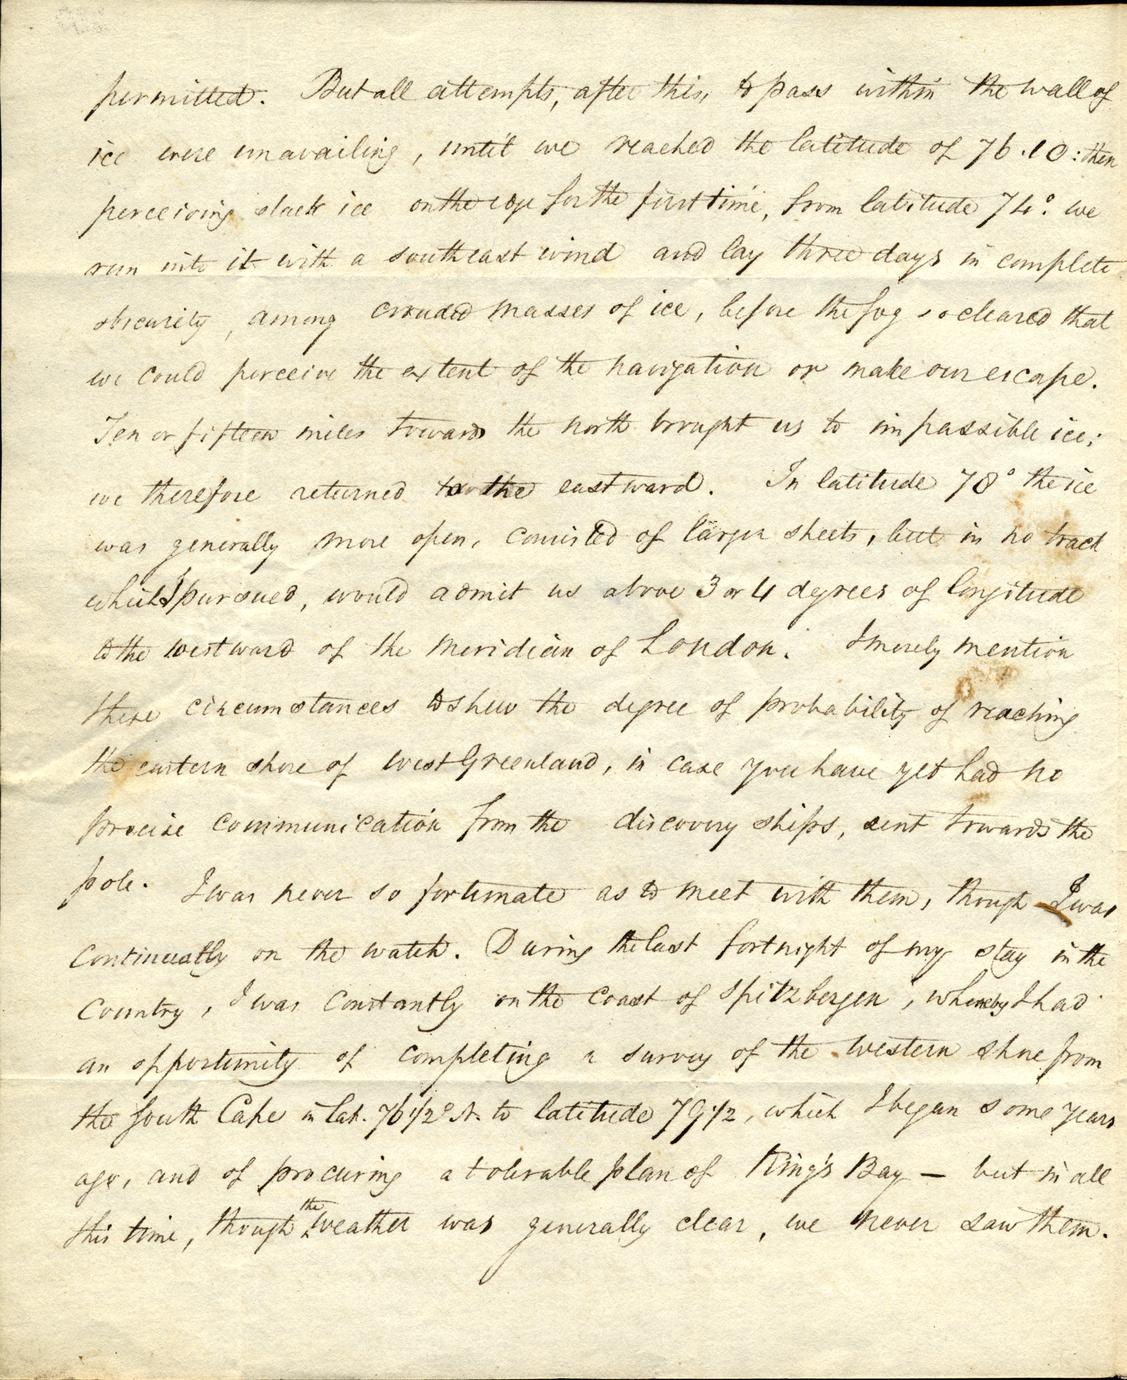 permitted. But all attempts, after this, to pass within the wall of
ice were unavailing, until we reached the latitude of 76.10: then
perceiving slack ice on the edge for the first time, from latitude 74°. we
run into it with a southeast wind and lay three days in complete
obscurity, among crouded masses of ice, before the fog so cleared that
we could perceive the extent of the navigation or make our escape.
Ten or fifteen miles towards the north brought us to impassible ice;
we therefore returned to the eastward. In latitude 78° the ice
was generally more open, consisted of larger sheets, but in no track
which I pursued, would admit us above 3 or 4 degrees of longitude
to the westward of the meridian of London. I merely mention
these circumstances to shew the degree of probability of reaching
the eastern shore of West Greenland, in case you have yet had no
precise communication from the discovery ships, sent towards the
pole. I was never so fortunate as to meet with them, though I was
continually on the watch. During the last fortnight of my stay in the
Country, I was constantly on the coast of Spitzbergen, whereby I had
an opportunity of completing a survey of the western shore from
the South Cape in Lat. 76 1/2° N. to latitude 79 1/2, which I began some years
ago, and of procuring a tolerable plan of King's Bay — but in all
this time, though the weather was generally clear, we never saw them.